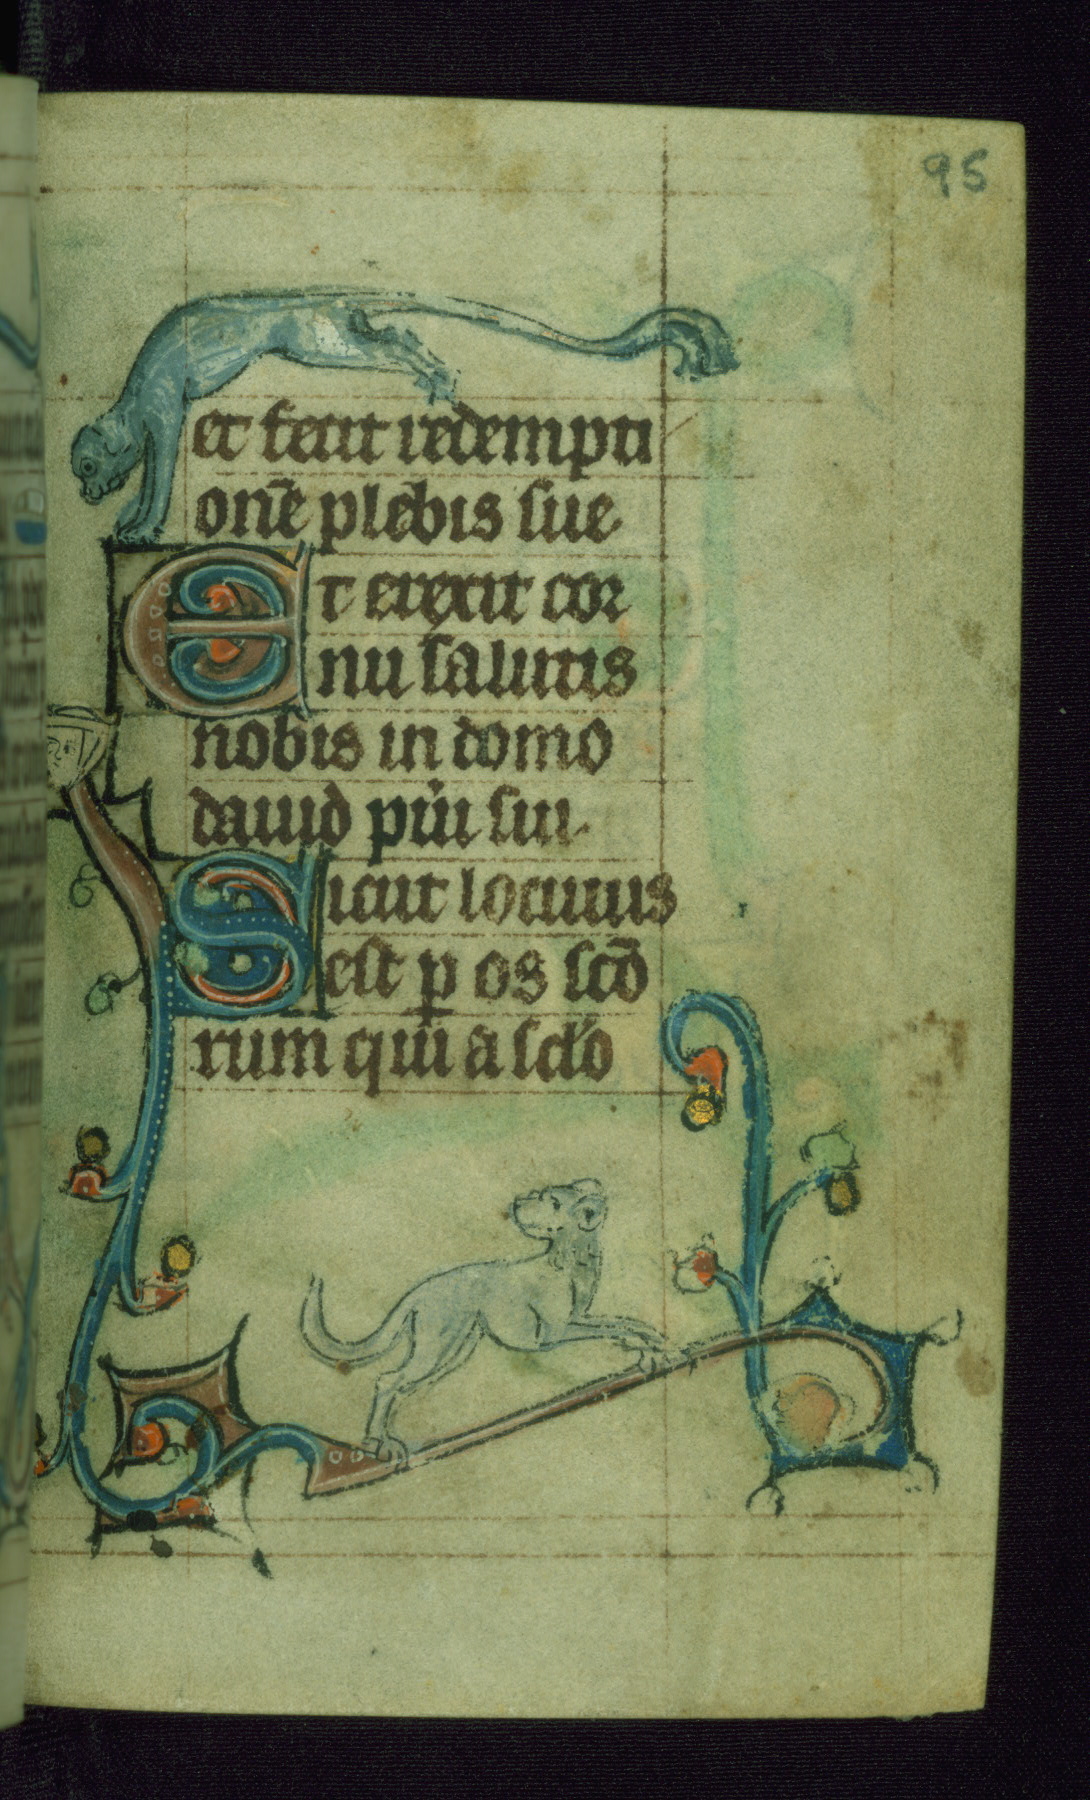 95
et fecit redempti
onē plebis sue.
Et erexit cor
nu salutis
nobis in domo
dauid pueri sui.
Sicut locutus
est ꝑ os scō
rum qui a sclo